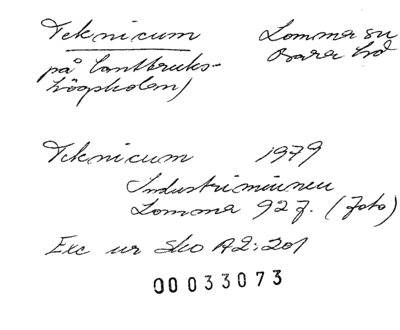 Teknicum Lomma sn
på lantbruks- Bara hd
högskolan)
Teknicum 1979
Industriminnen
Lomma 92 f. (foto)
Exc ur Sko A2:201
00033073